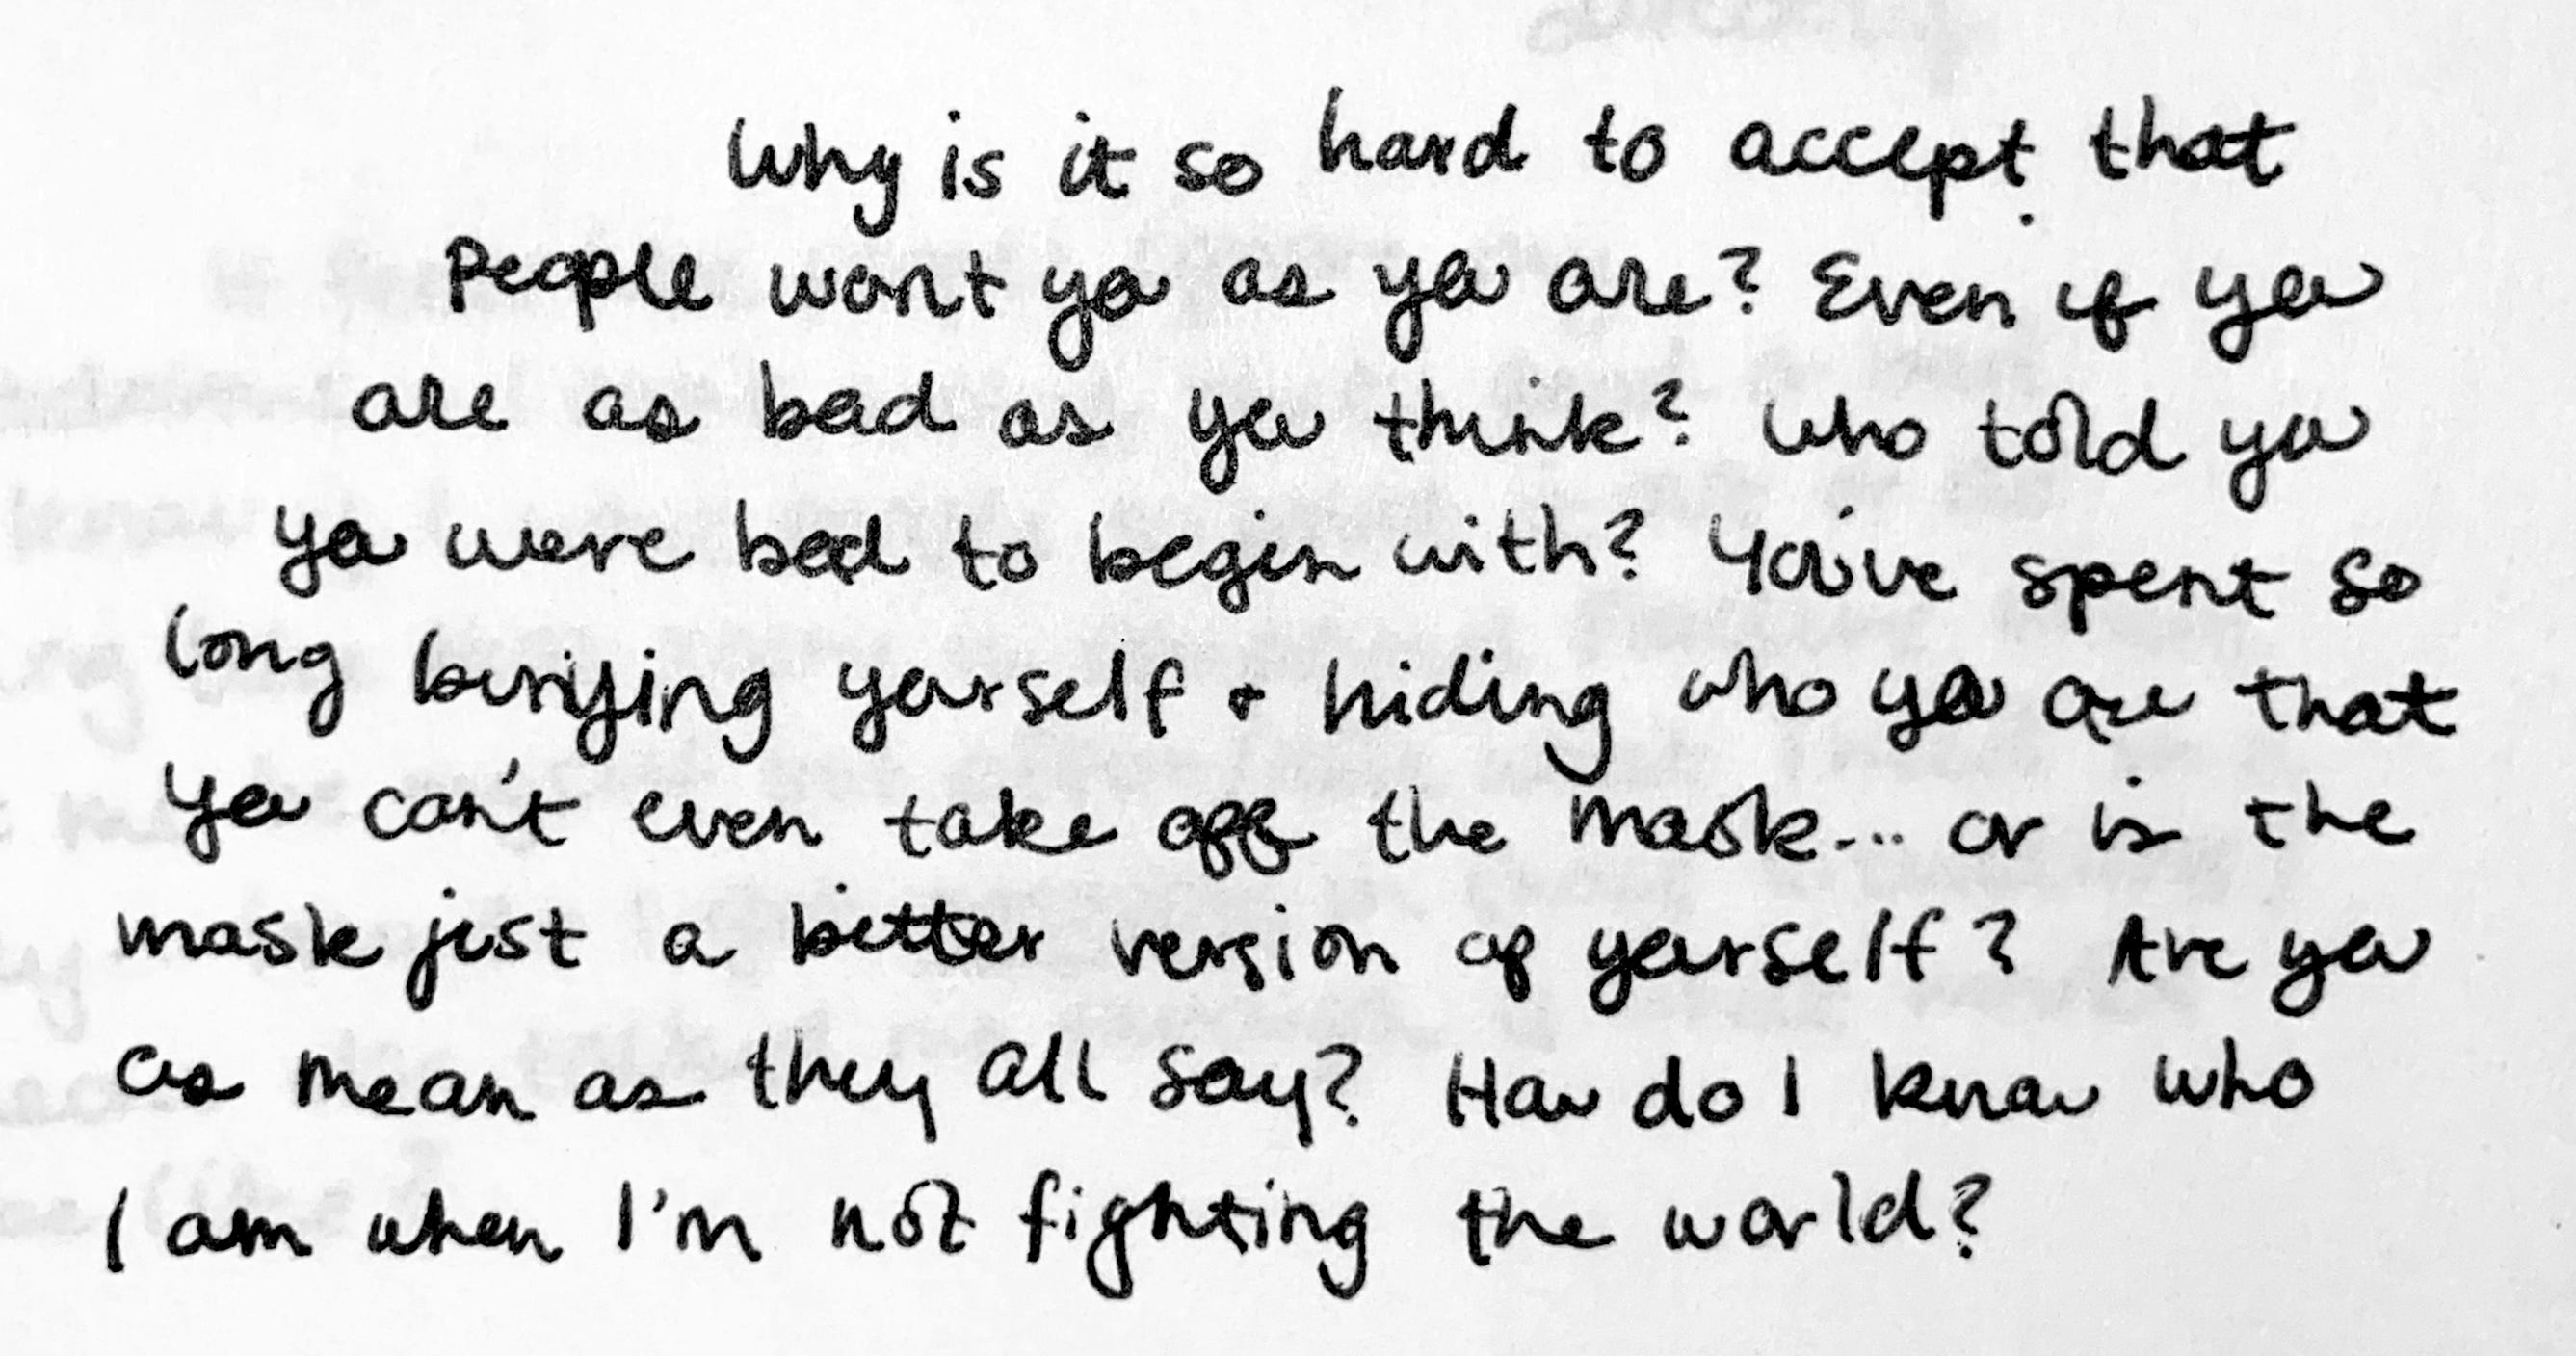 Why is it so hard to accept that
People want you as you are? Even if you
are as bad as you think? Who told you
you were bad to begin with? You've spent so
long burying yourself + hiding who you are that
you can't even take off the mask... or is the
mask just a better version of yourself? Are you
as mean as they all say? How do I know who
I am when I'm not fighting the world?